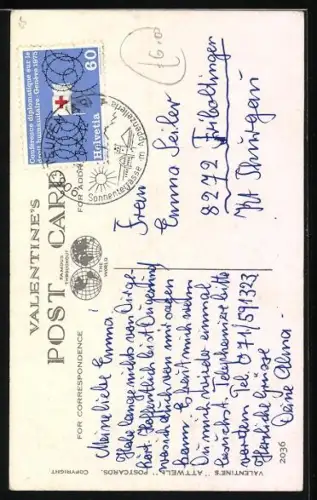 £6.00
Conférence diplomatique sur le
droit humanitaire-Genève 1975
60
Helvetia
Sonnenterrasse
VALENTINE'S
POST CARD
FAMOUS THROUGHOUT
THE WORLD
FOR CORRESPONDENCE
FOR ADDR
Meine liebe Emma!
Habe lange nichts von Dir ge-
hört. Hoffentlich bist Du gesund
was ich von mir sagen
kann. Es freut mich wenn
Du mich wieder einmal
besuchst. Telephonier bitte
vordem Tel. 071/591323
Herzliche Grüsse
Deine Alma.
Frau
Emma Seiler
8272 Fruboltingen
Kt Thurgau
VALENTINE'S "ATTWELL" POSTCARDS. COPYRIGHT
2036